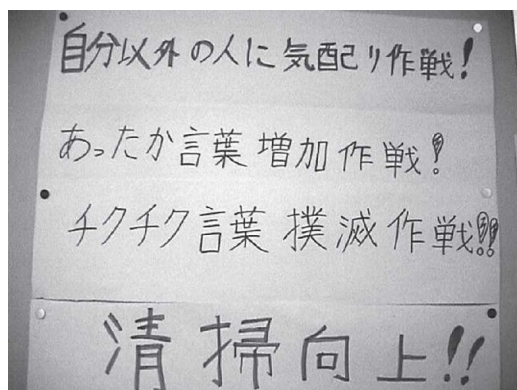 自分以外の人に気配り作戦!
あったか言葉増加作戦!
チクチク言葉撲滅作戦!!
清掃向上!!